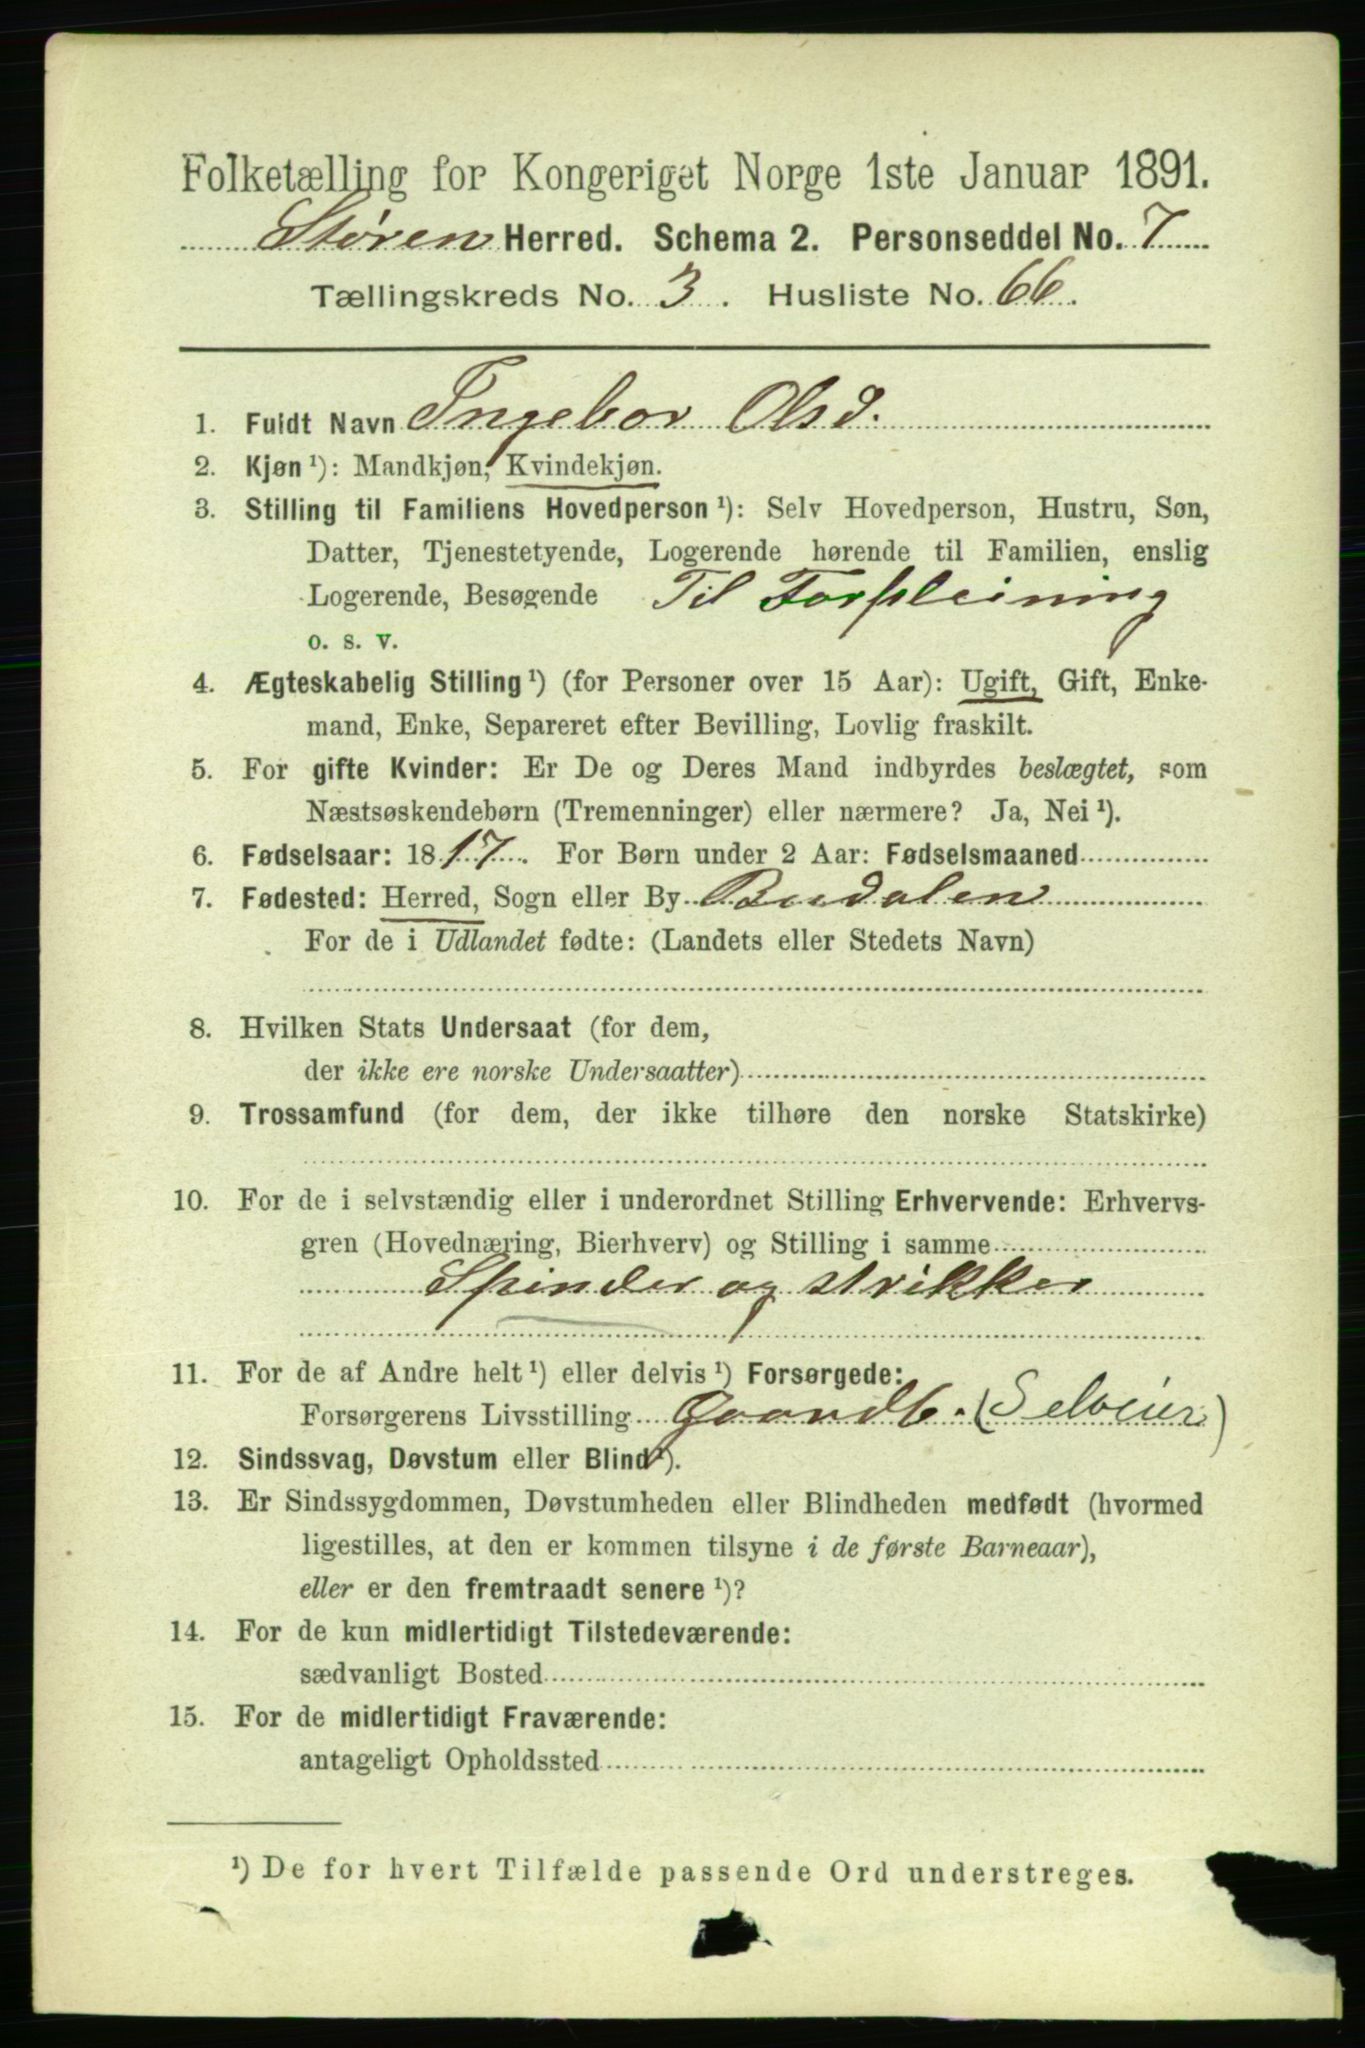 Folketælling for Kongeriget Norge 1ste Januar 1891.
Støren Herred. Schema 2. Personseddel No. 7
Tællingskreds No. 3. Husliste No. 66.
1. Fuldt Navn Ingebor Olsd.
2. Kjøn¹): Mandkjøn, Kvindekjøn.
3. Stilling til Familiens Hovedperson¹): Selv Hovedperson, Hustru, Søn,
Datter, Tjenestetyende, Logerende hørende til Familien, enslig
Logerende, Besøgende Til Forpleining
o. s. v.
4. Ægteskabelig Stilling¹) (for Personer over 15 Aar): Ugift, Gift, Enke-
mand, Enke, Separeret efter Bevilling, Lovlig fraskilt.
5. For gifte Kvinder: Er De og Deres Mand indbyrdes beslægtet, som
Næstsøskendebørn (Tremenninger) eller nærmere? Ja, Nei¹).
6. Fødselsaar: 1817. For Børn under 2 Aar: Fødselsmaaned
7. Fødested: Herred, Sogn eller By Budalen
For de i Udlandet fødte: (Landets eller Stedets Navn)
8. Hvilken Stats Undersaat (for dem,
der ikke ere norske Undersaatter)
9. Trossamfund (for dem, der ikke tilhøre den norske Statskirke)
10. For de i selvstændig eller i underordnet Stilling Erhvervende: Erhvervs-
gren (Hovednæring, Bierhverv) og Stilling i samme
Spinder og strikker
11. For de af Andre helt¹) eller delvis¹) Forsørgede:
Forsørgerens Livsstilling Gaardb. (Selveier)
12. Sindssvag, Døvstum eller Blind¹).
13. Er Sindssygdommen, Døvstumheden eller Blindheden medfødt (hvormed
ligestilles, at den er kommen tilsyne i de første Barneaar),
eller er den fremtraadt senere¹)?
14. For de kun midlertidigt Tilstedeværende:
sædvanligt Bosted
15. For de midlertidigt Fraværende:
antageligt Opholdssted
¹) De for hvert Tilfælde passende Ord understreges.